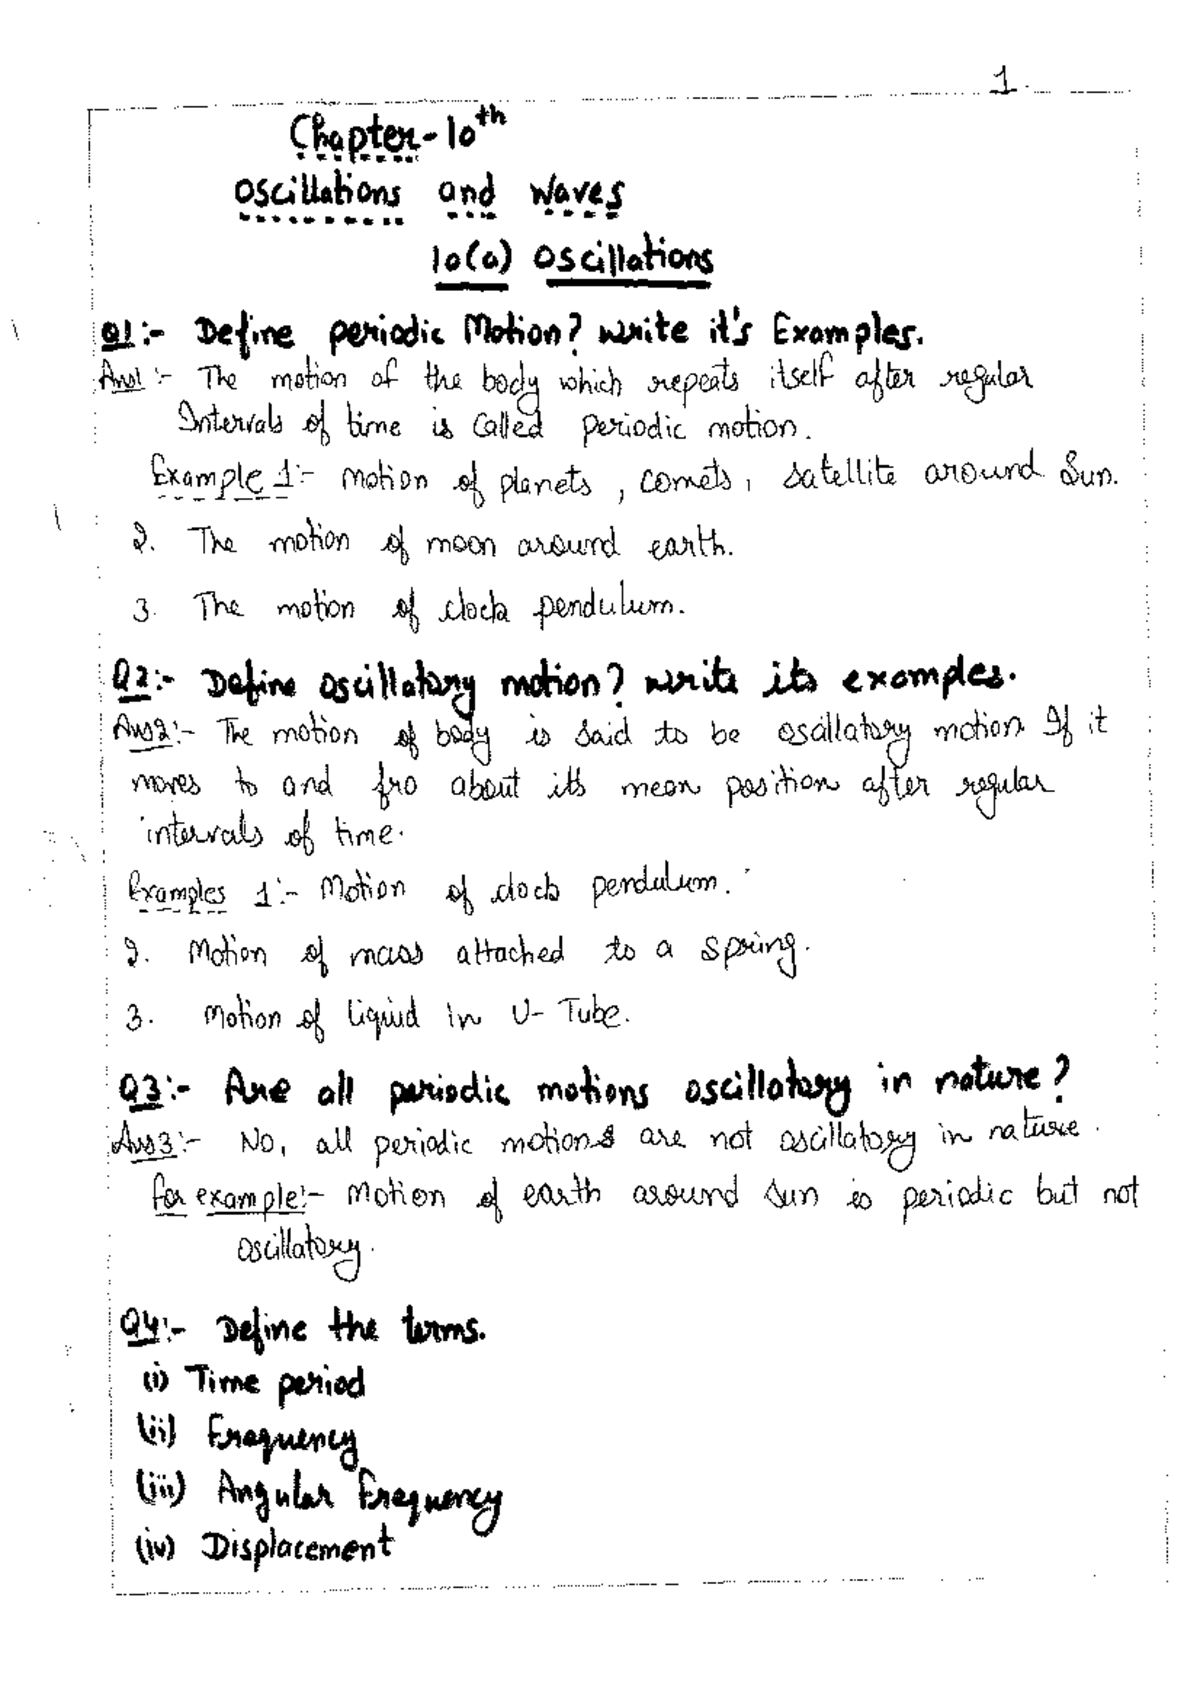 1.
Chapter-10th
Oscillations and Waves
10(a) Oscillations
Q1:- Define periodic Motion? Write it's Examples.
Ans1:- The motion of the body which repeats itself after regular
Intervals of time is Called periodic motion.
Example 1:- Motion of planets, comets, Satellite around Sun.
2. The motion of moon around earth.
3. The motion of clock pendulum.
Q2:- Define oscillatory motion? Write its examples.
Ans2:- The motion of body is Said to be oscillatory motion If it
moves to and fro about its mean position after regular
intervals of time.
Examples 1:- Motion of clock pendulum.
2. Motion of mass attached to a Spring.
3. Motion of liquid in U-Tube.
Q3:- Are all periodic motions oscillatory in nature?
Ans3:- No, all periodic motions are not oscillatory in nature.
For example:- Motion of earth around Sun is periodic but not
oscillatory.
Q4:- Define the terms.
(i) Time period
(ii) Frequency
(iii) Angular Frequency
(iv) Displacement